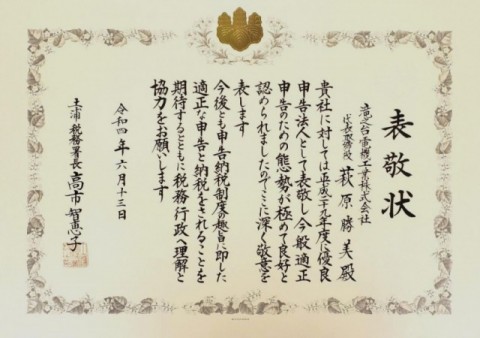 表敬状
台電機工業株式会社
代表取締役 萩原勝美殿
貴社に対しては平成二十九年度に優良
申告法人として表敬し今般適正
申告のための態勢が極めて良好と
認められましたのでここに深く敬意を
表します
今後とも申告納税制度の趣旨に即した
適正な申告と納税をされることを
期待するとともに税務行政へ理解と
協力をお願いします
令和四年六月十三日
土浦税務署長 高市智恵子